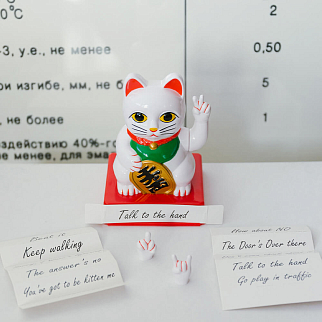 0°C
2
-3, у.е., не менее
0,50
ри изгибе, мм, не б
5
, не более
1
здействию 40%-го
не менее, для эма
Talk to the hand
Keep walking
The answer's no
You've got to be kitten me
How about NO
The Door's Over there
Talk to the hand
Go play in traffic